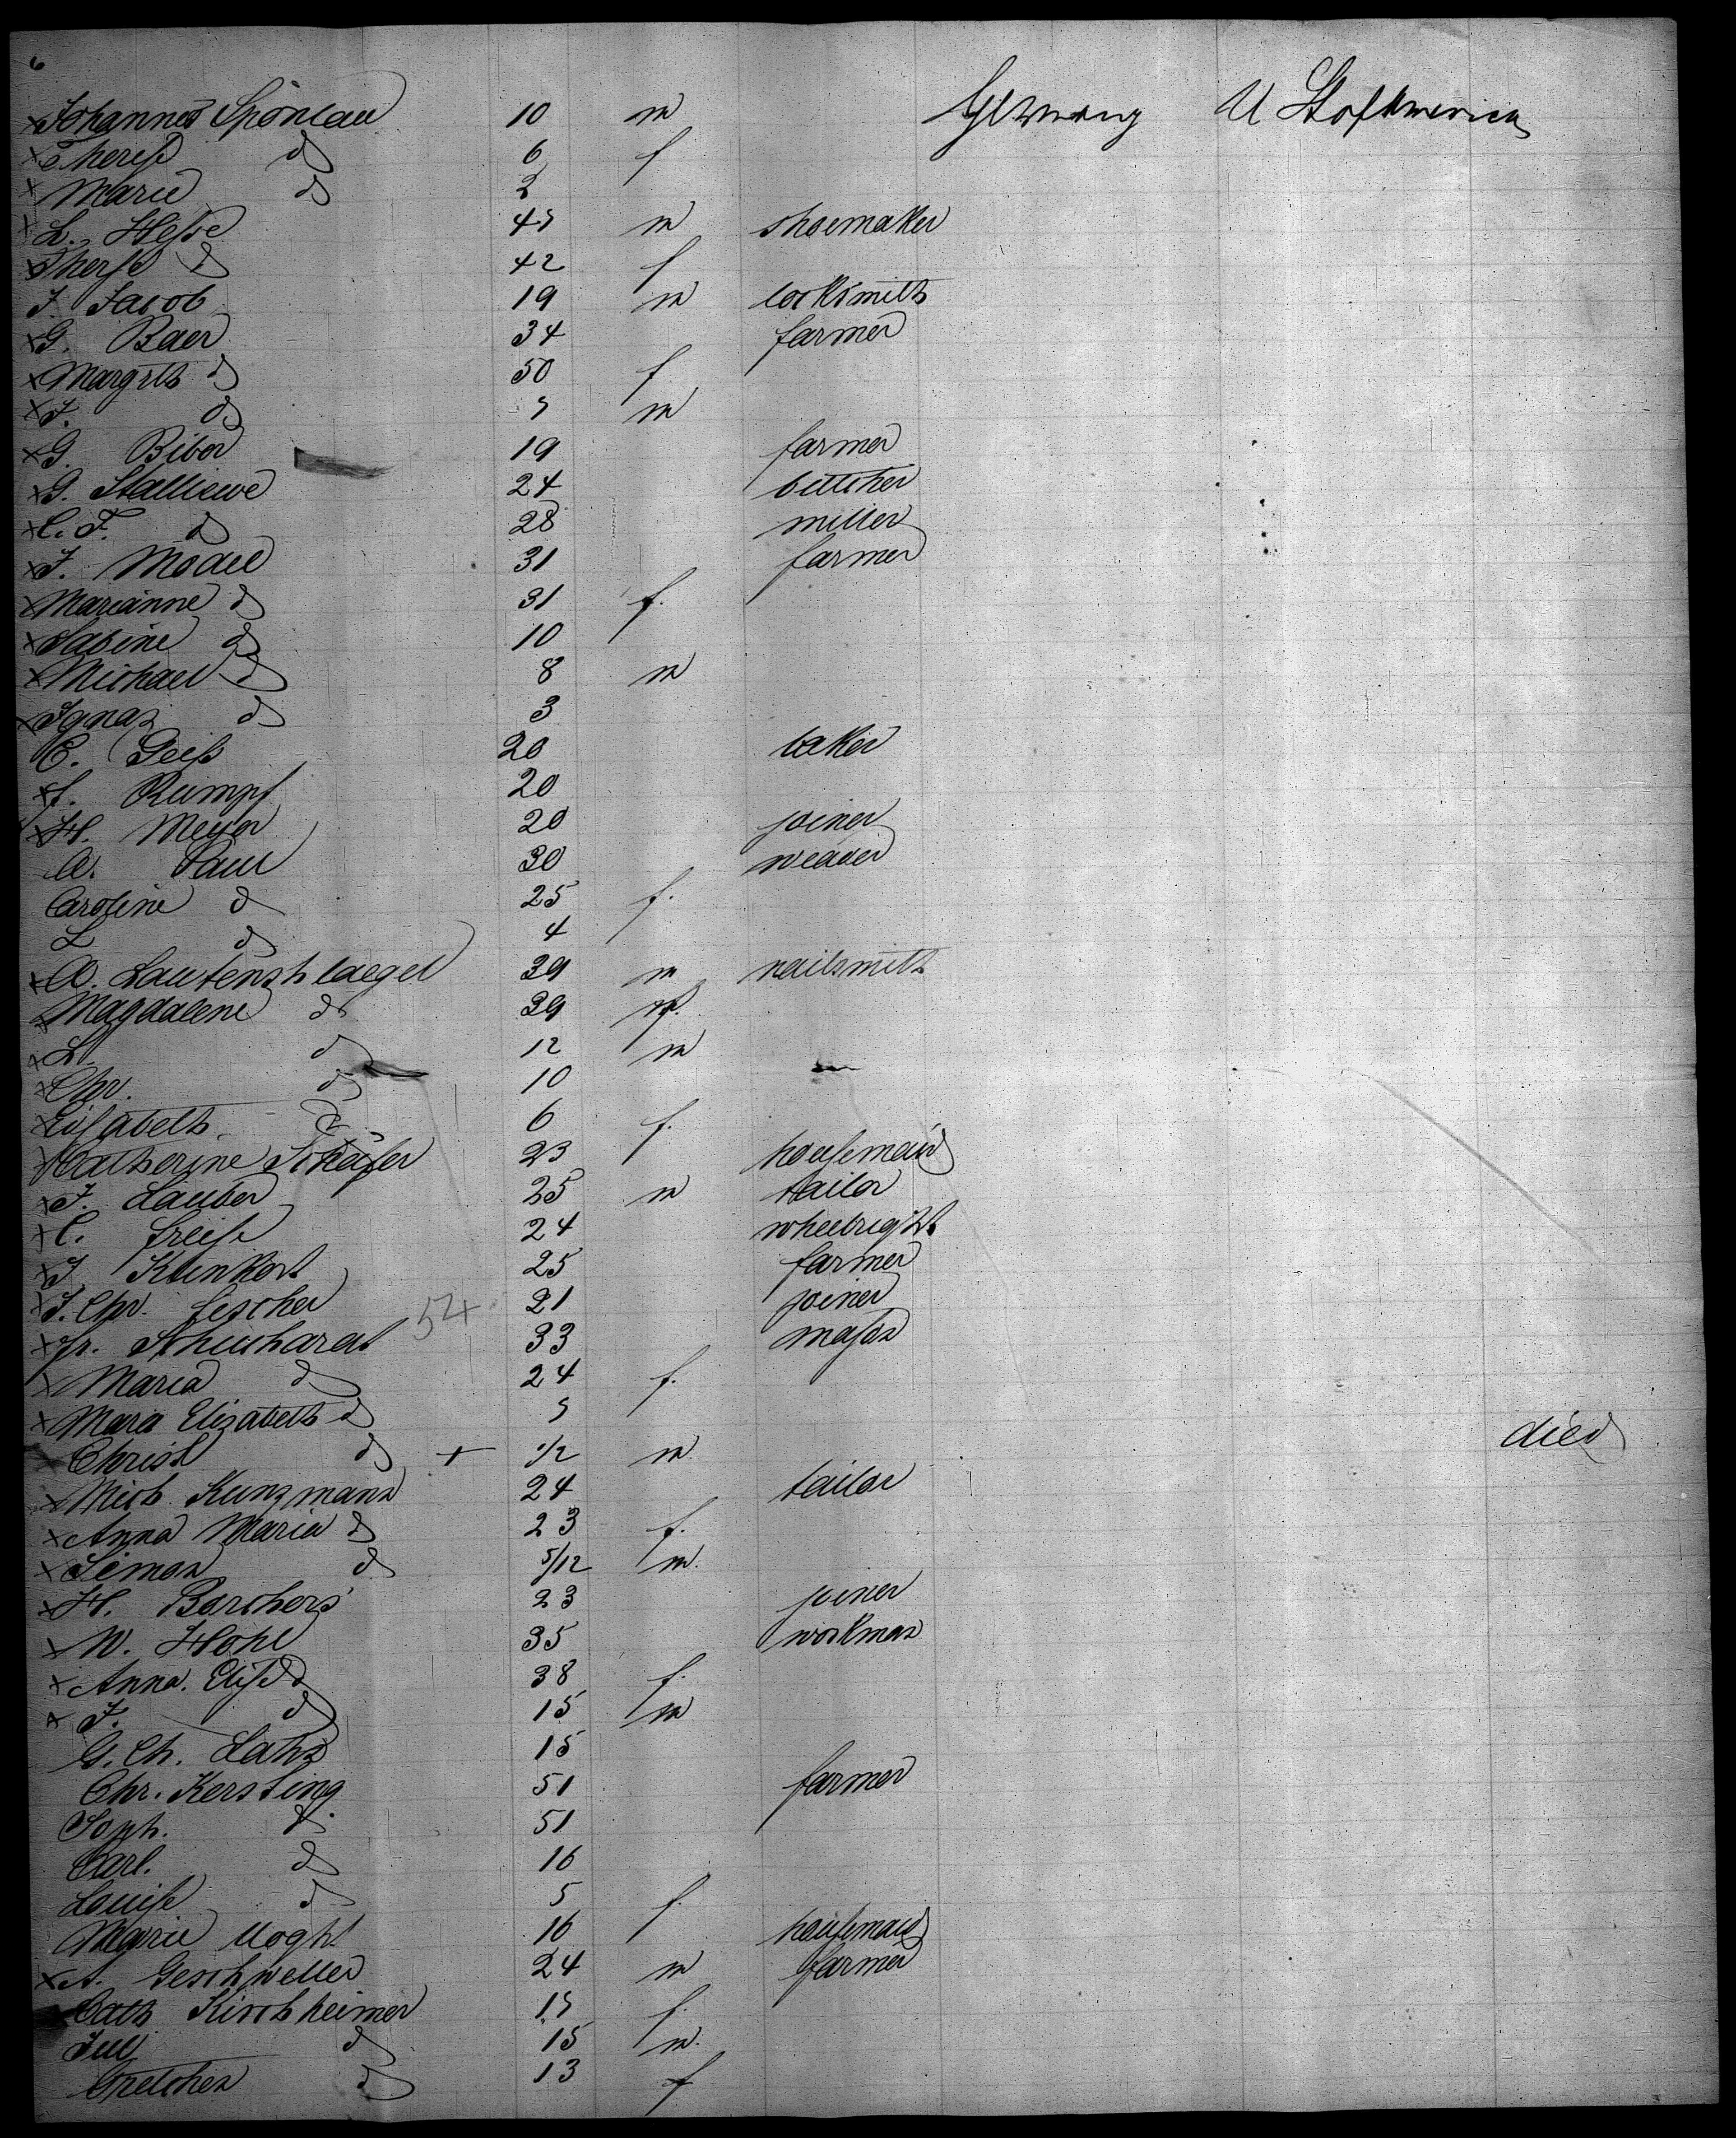 6
x Johannes Spönlau 10 m Germany U St of America
x Therese do 6 f
x Marie do 2
x L. Hesse 45 m shoemaker
x Therse do 42 f
J. Jacob 19 m locksmith
x G. Baer 34 farmer
x Margreth do 50 f
x J. do 5 m
x G. Biber 19 farmer
x G. Stalliewe 24 buttcher
x C. F. do 28 miller
x J. Model 31 farmer
x Marianne do 31 f.
x Sabine do 10
x Michael do 8 m
x Ignaz do 3
C. Geiß 20 baker
x f. Rumpf 20
x H. Meyer 20 joiner
A. Paul 30 weaver
Caroline do 25 f.
L do 4
x A. Lautenshlaegel 39 m nailsmith
x Magdalene do 39 f.
x L. do 12 m
x Chr. do 10
x Elisabeth do 6 f.
x Catherine Schäfer 23 housemaid
x J. Lauber 25 m tailor
x C. freise 24 wheelright
x J. Kunkert 25 farmer
x J. Chr. fescher 54 21 joiner
x Fr. Schuchardt 33 mason
x Maria do 24 f.
x Mara Elizabeth do 5
Christ do + 1/2 m died
x Mich. Kunzmann 24 tailor
x Anna Maria do 23 f.
x Simon do 5/12 m.
x H. Borchers 23 joiner
x W. Hohl 35 workman
x Anna. Elise do 38 f.
x J. do 15 m
G. Ch. Lahn 15
Chr. Kersting 51 farmer
Soph. do 51
Carl. do 16
Louise do 5 f.
Marie Voght 16 housemaid
x A. Geschweller 24 m farmer
Cath Kirchheimer 15 f.
Jul do 15 m.
Gretchen do 13 f